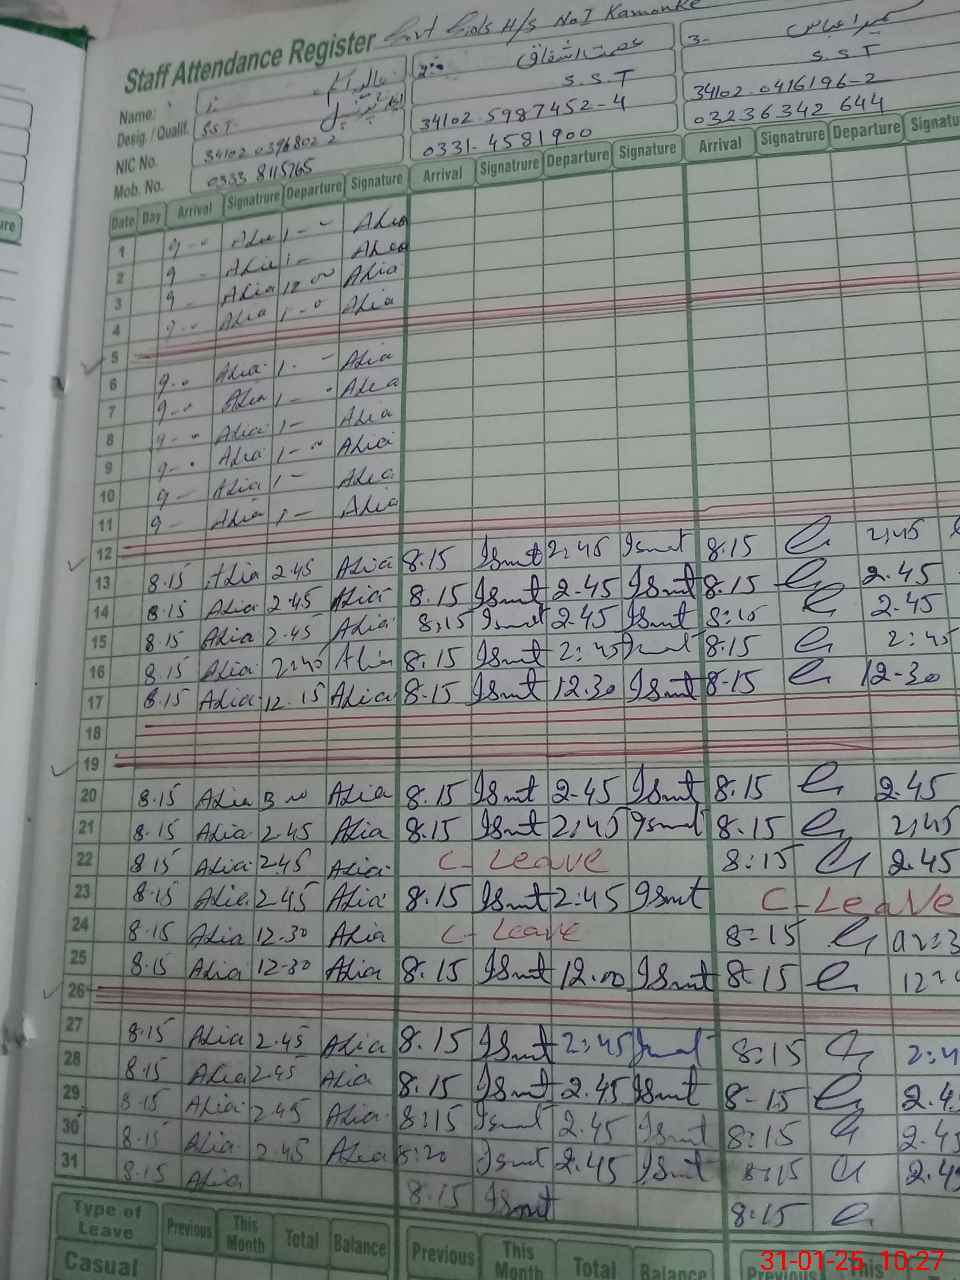 Staff Attendance Register Govt Girls H/S No 1 Kamonke
Name:
Desig. / Qualif. S.S.T. S.S.T S.S.T
NIC No. 34102 5987452-4 34102.0416196-2
Mob. No. 0333 8115765 0331-4581900 03236342 644
Date Day Arrival Signatrure Departure Signature Arrival Signatrure Departure Signature Arrival Signatrure Departure
1 9 Alia 1 Alia
2 9 Alia 1 Alia
3 9 Alia 12 Alia
4 9 Alia 1 Alia
5
6 9 Alia 1 Alia
7 9 Alia 1 Alia
8 9 Alia 1 Alia
9 9 Alia 1 Alia
10 9 Alia 1 Alia
11 9 Alia 1 Alia
12
13 8.15 Alia 2.45 Alia 8.15 Ismt 2:45 Ismt 8.15 2,45
14 8.15 Alia 2.45 Alia 8.15 Ismt 2.45 Ismt 8.15 2.45
15 8.15 Alia 2.45 Alia 8:15 Ismt 2.45 Ismt 8:15 2.45
16 8.15 Alia 2:45 Alia 8:15 Ismt 2:45 Ismt 8:15 2:45
17 8.15 Alia 12.15 Alia 8.15 Ismt 12.30 Ismt 8-15 12-30
18
19
20 8.15 Alia Alia 8.15 Ismt 2-45 Ismt 8.15 2.45
21 8.15 Alia 2.45 Alia 8.15 Ismt 2,45 Ismt 8.15 2,45
22 8.15 Alia 2.45 Alia C-Leave 8:15 2.45
23 8.15 Alia 2.45 Alia 8.15 Ismt 2:45 Ismt C-Leave
24 8.15 Alia 12.30 Alia C-Leave 8=15
25 8.15 Alia 12-30 Alia 8.15 Ismt 12.00 Ismt 8-15
26
27 8.15 Alia 2.45 Alia 8.15 Ismt 2:45 Ismt 8:15
28 8.15 Alia 2.45 Alia 8.15 Ismt 2.45 Ismt 8-15
29 8.15 Alia 2.45 Alia 8:15 Ismt 2.45 Ismt 8:15
30 8.15 Alia 2.45 Alia 8:20 Ismt 2.45 Ismt 8:15
31 8.15 Alia 8.15 Ismt 8:15
Type of Leave Previous This Month Total Balance Previous This Month Total Balance Previous This
Casual
31-01-25, 10:27